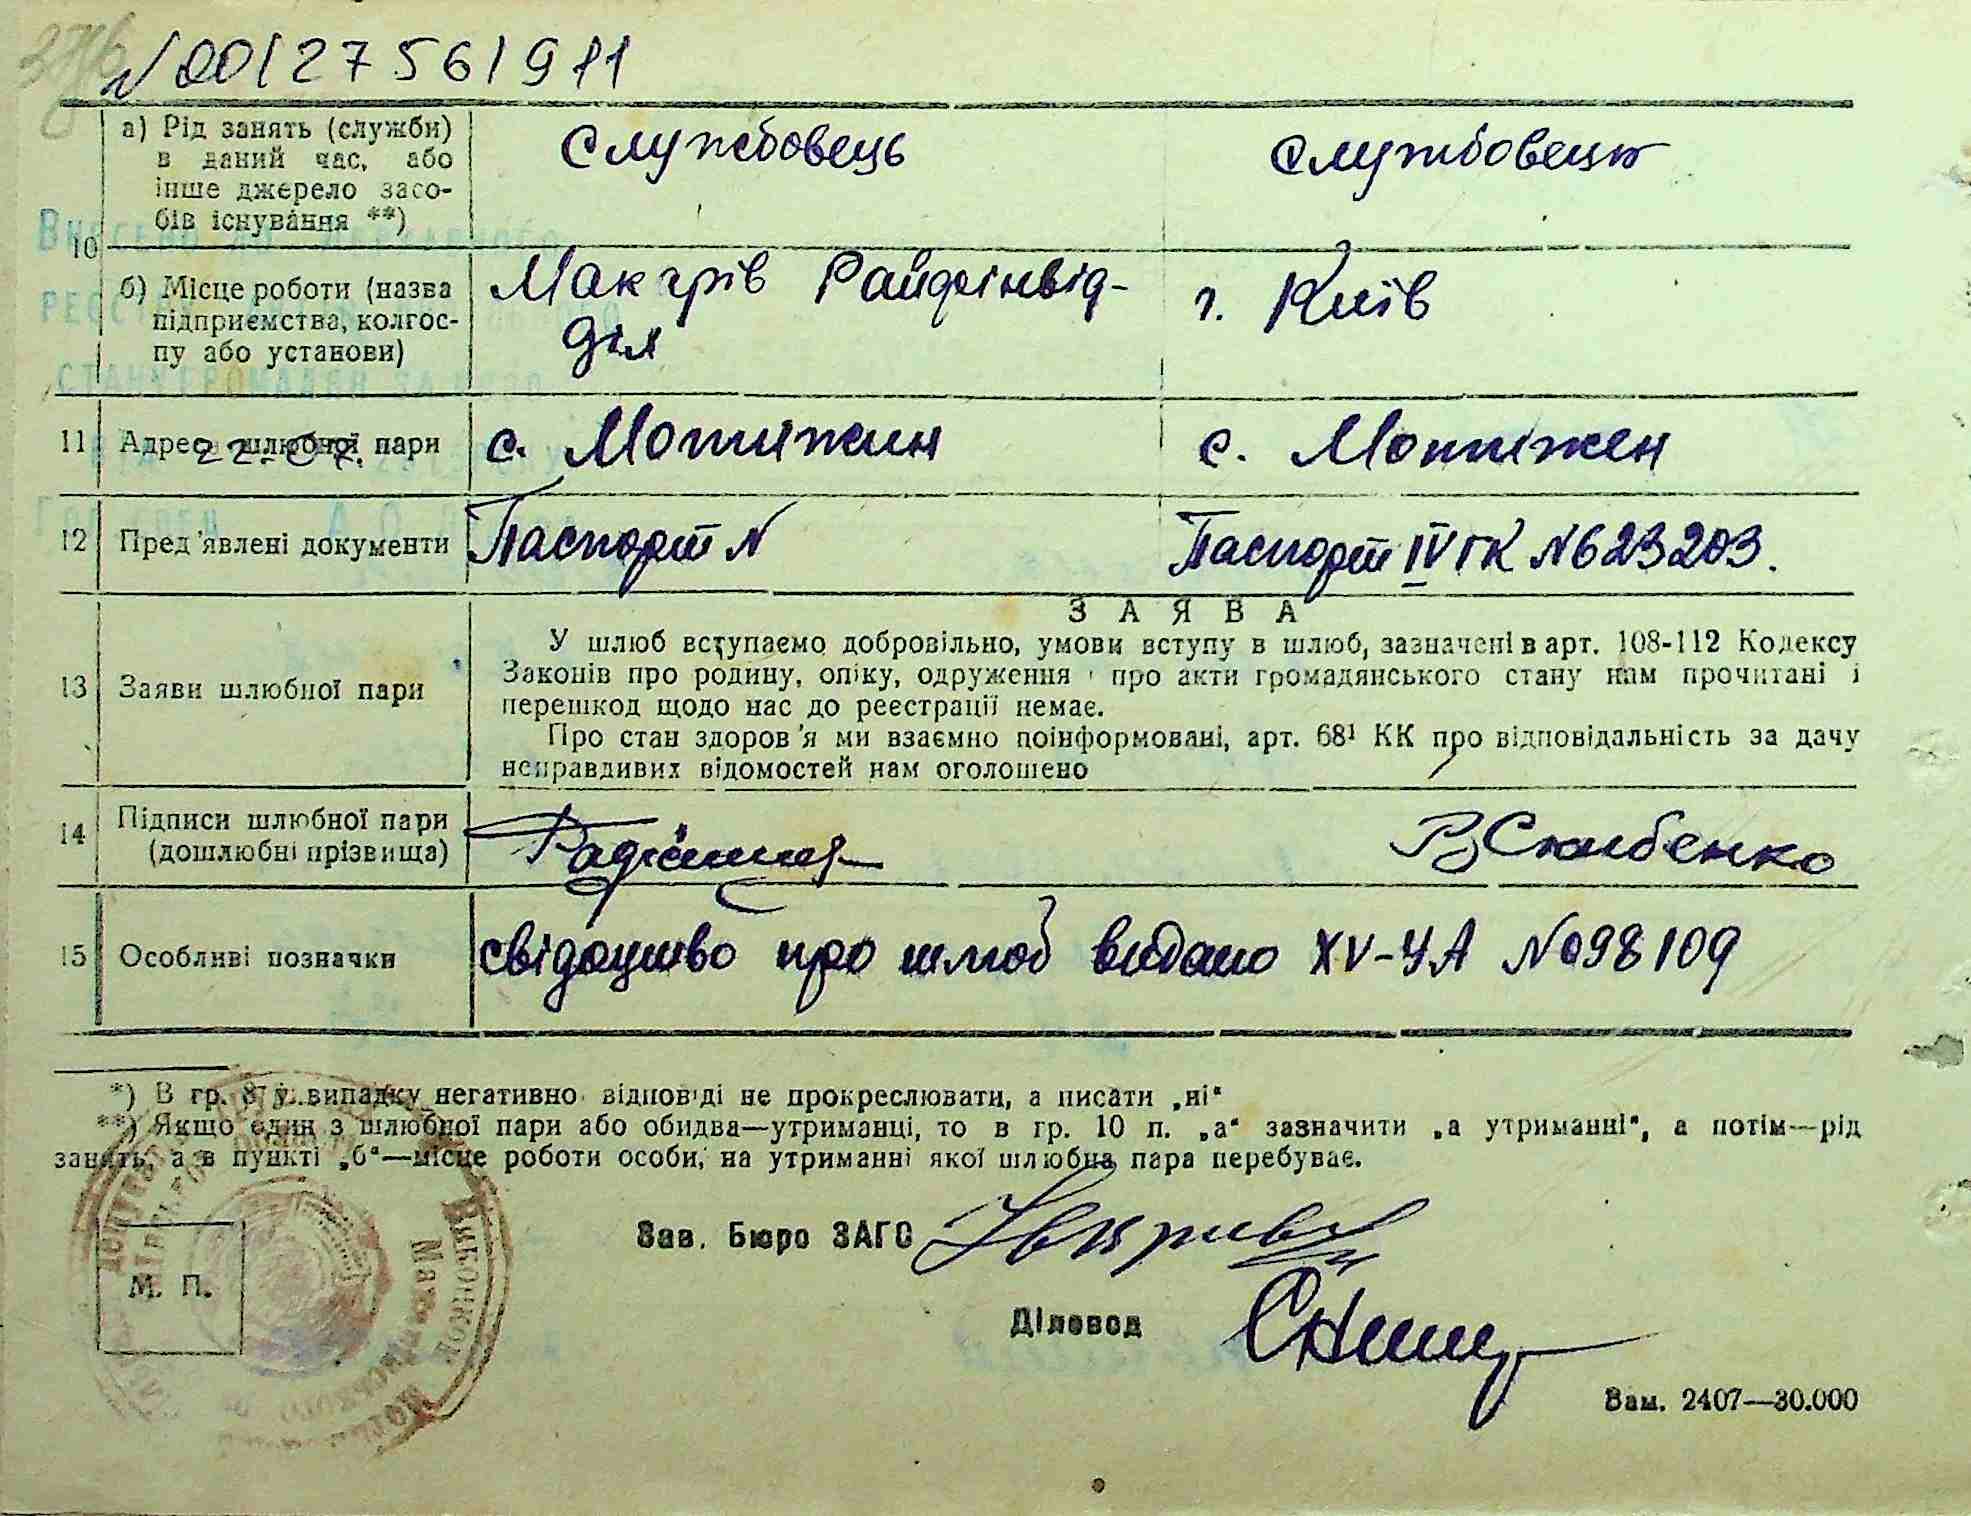 N 00127561911
а) Рід занять (служби) в даний час, або інше джерело засобів існування **)
Службовець Службовець
10
б) Місце роботи (назва підприємства, колгоспу або установи)
Макарів Райфінвід-
діл
г. Київ
11 Адреса шлюбної пари с. Мотижин с. Мотижен
12 Пред'явлені документи Паспорт N Паспорт IV ГК N 623203.
ЗАЯВА
13 Заяви шлюбної пари
У шлюб вступаємо добровільно, умови вступу в шлюб, зазначені в арт. 108-112 Кодексу
Законів про родину, опіку, одруження і про акти громадянського стану нам прочитані і
перешкод щодо нас до реєстрації немає.
Про стан здоров'я ми взаємно поінформовані, арт. 68¹ КК про відповідальність за дачу
неправдивих відомостей нам оголошено
14 Підписи шлюбної пари
(дошлюбні прізвища)
15 Особливі позначки свідоцтво про шлюб видано XV-УА N 098109
*) В гр. 8 у випадку негативно відповіді не прокреслювати, а писати „ні“
**) Якщо один з шлюбної пари або обидва—утриманці, то в гр. 10 п. „а“ зазначити „а утриманні“, а потім—рід
занять, а в пункті „б“—місце роботи особи, на утриманні якої шлюбна пара перебуває.
Зав. Бюро ЗАГС
М. П.
Діловод
Зам. 2407—30.000